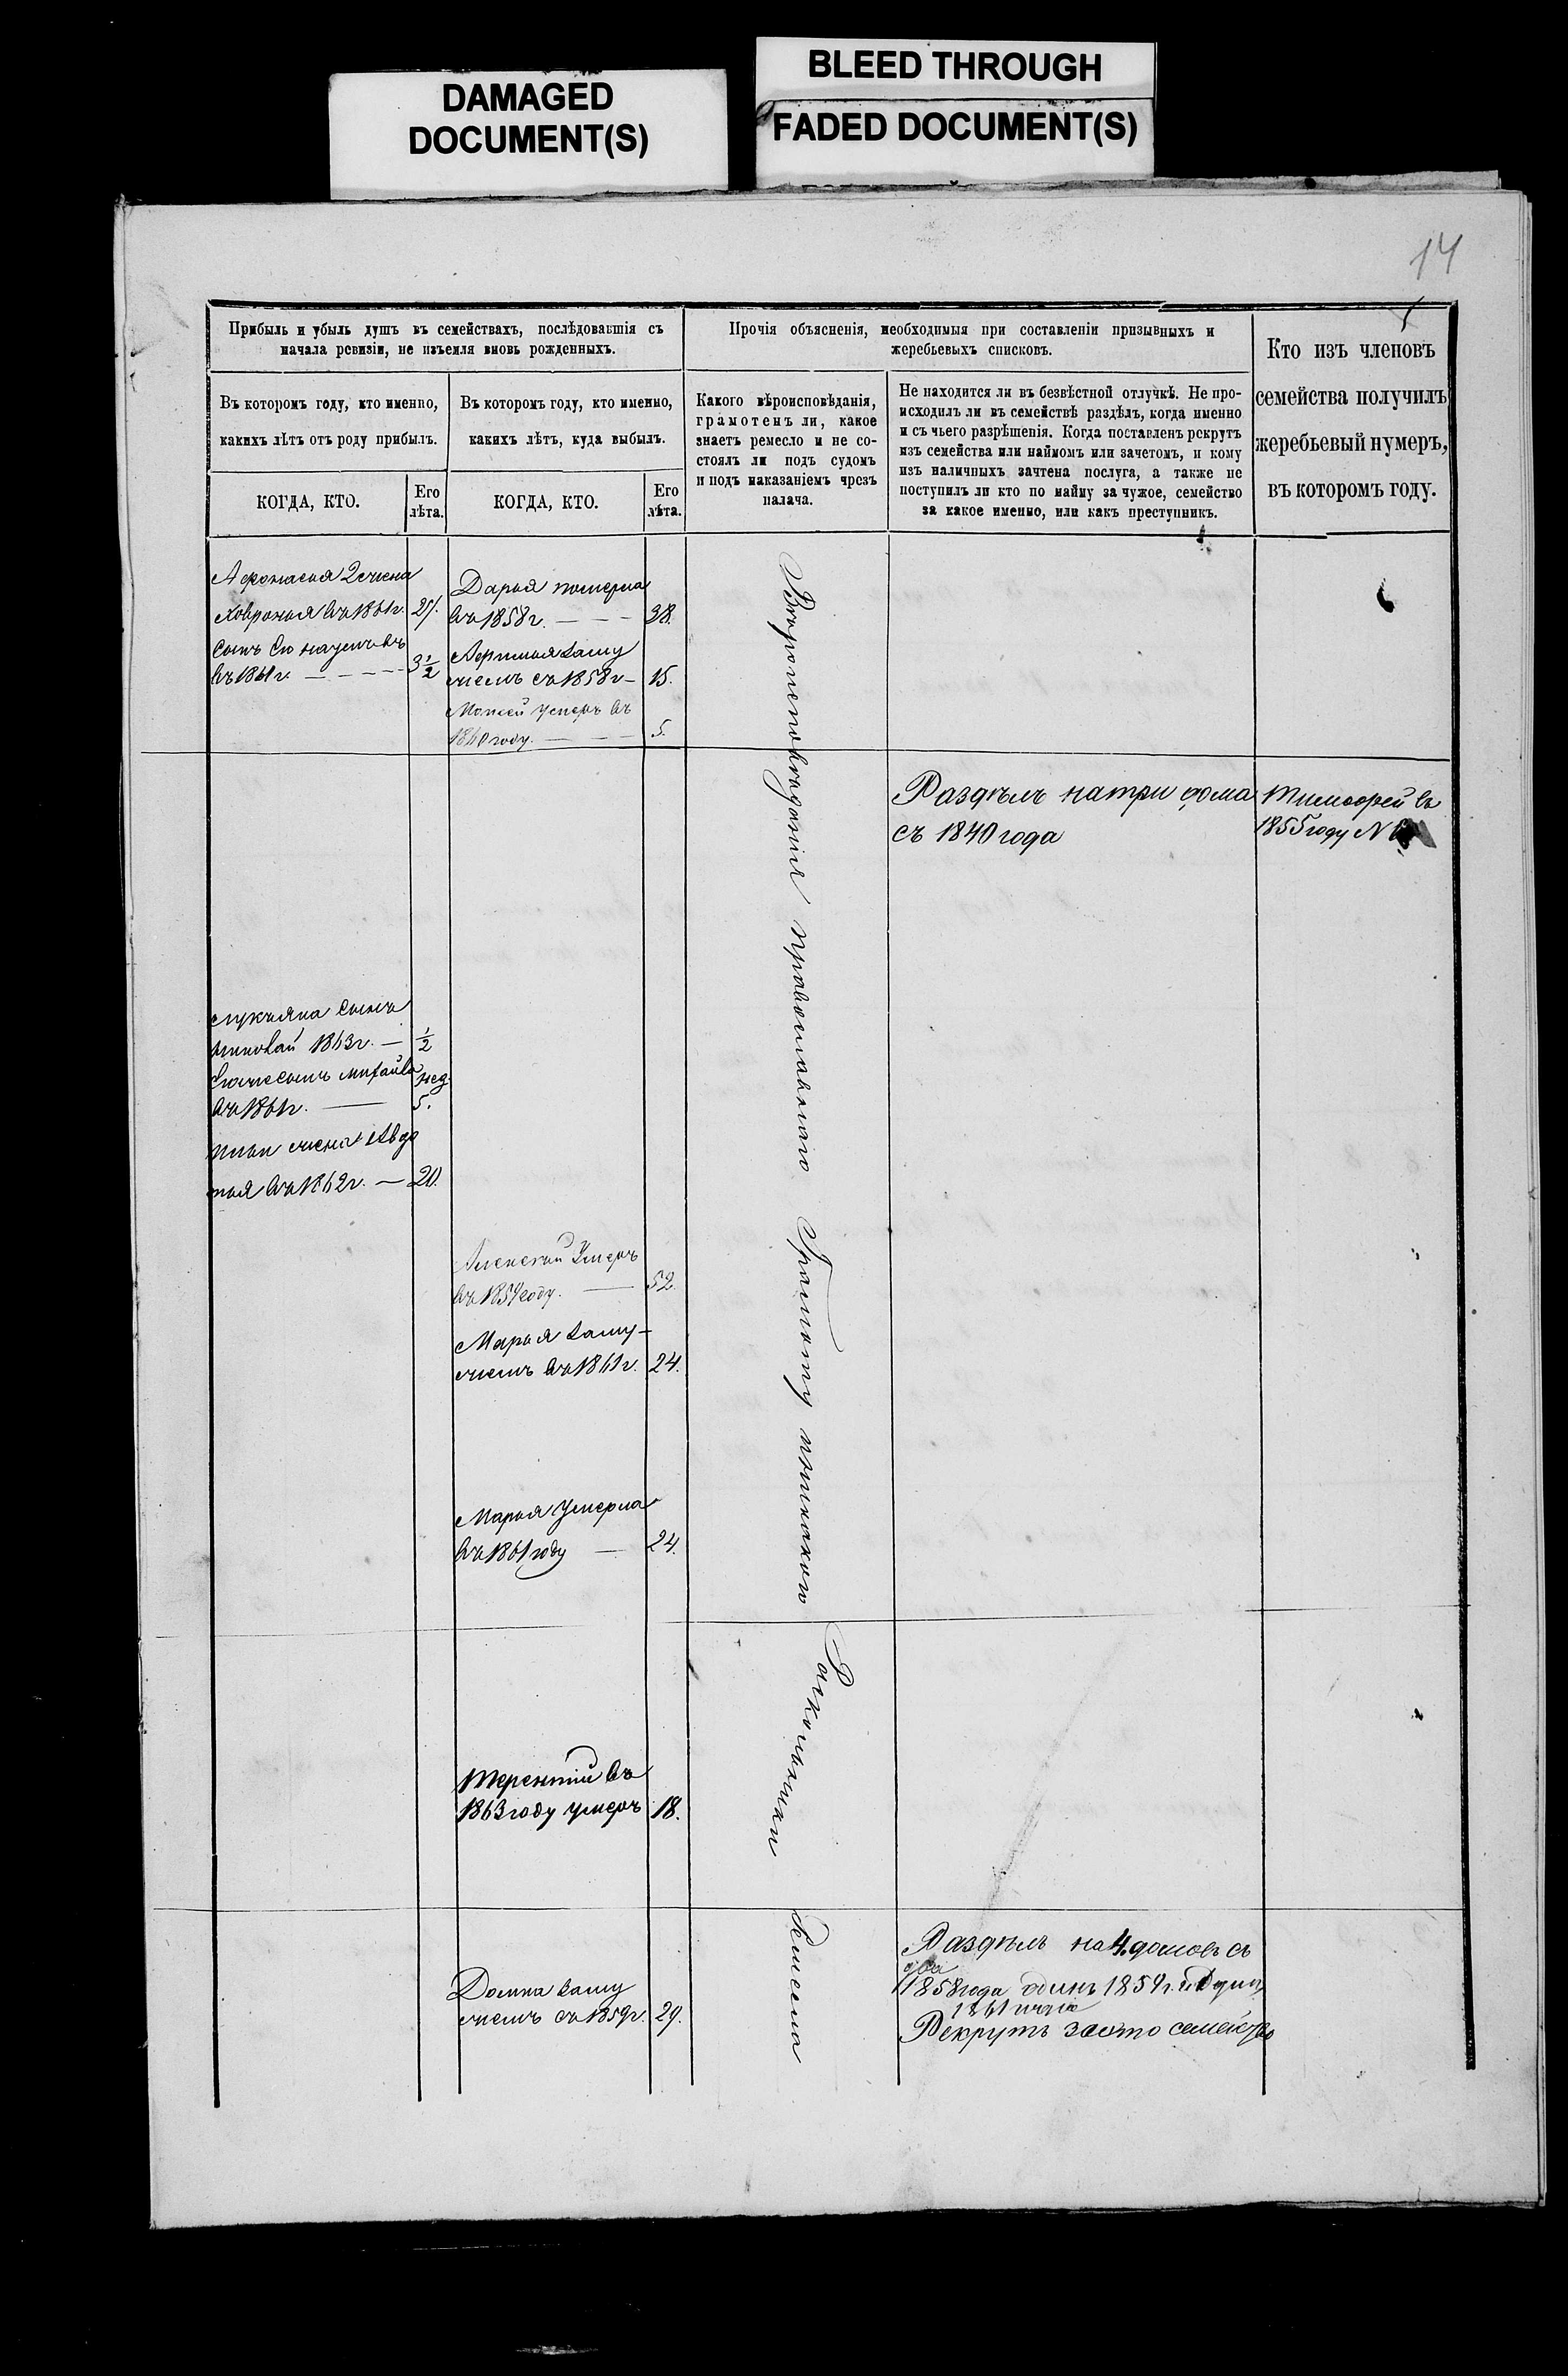 DAMAGED
DOCUMENT(S)
BLEED THROUGH
FADED DOCUMENT(S)
14
Прибыль и убыль душъ въ семействахъ, послѣдовавшія съ
начала ревизіи, не изъемля вновь рожденныхъ.
Въ которомъ году, кто именно,
какихъ лѣтъ отъ роду прибылъ.
КОГДА, КТО.
Его
лѣта.
Въ которомъ году, кто именно,
какихъ лѣтъ, куда выбылъ.
КОГДА, КТО.
Его
лѣта.
Прочія объясненія, необходимыя при составленіи призывныхъ и
жеребьевыхъ списковъ.
Какого вѣроисповѣданія,
грамотенъ ли, какое
знаетъ ремесло и не со-
стоялъ ли подъ судомъ
и подъ наказаніемъ чрезъ
палача.
Не находится ли въ безвѣстной отлучкѣ. Не про-
исходилъ ли въ семействѣ раздѣлъ, когда именно
и съ чьего разрѣшенія. Когда поставленъ рекрутъ
изъ семейства или наймомъ или зачетомъ, и кому
изъ наличныхъ зачтена послуга, а также не
поступилъ ли кто по найму за чужое, семейство
за какое именно, или какъ преступникъ.
Кто изъ членовъ
семейства получилъ
жеребьевый нумеръ,
въ которомъ году.
Афонасья 2 жена
Ховронья въ 1861 г.
сынъ его
въ 1861 г. 3 1/2
Дарья померла
въ 1858 г. 38.
заму
жемъ съ 1858 г 15.
Моисей умеръ въ
году. 5.
Вѣроисповѣданія православнаго
Грамоту
Раздѣлъ на три дома
съ 1840 года
Тимофей въ
1855 году №
Лукьяна сынъ
1863 г. 1/2
сынъ Михайла
въ 1861 г. 5.
жена Авдо
тья въ 1862 г. 20.
Алексѣй умеръ
въ 1859 году. 52.
Марья заму-
жемъ въ 1861 г. 24.
Марья умерла
въ 1861 году 24.
Раскольники
Терентій въ
1863 году умеръ 18.
Ремесла
Домна заму
жемъ съ 1859 г. 29.
Раздѣлъ на 4 домовъ съ
два
1858 года одинъ 1859 г. и
1861
Рекрутъ за это семейство